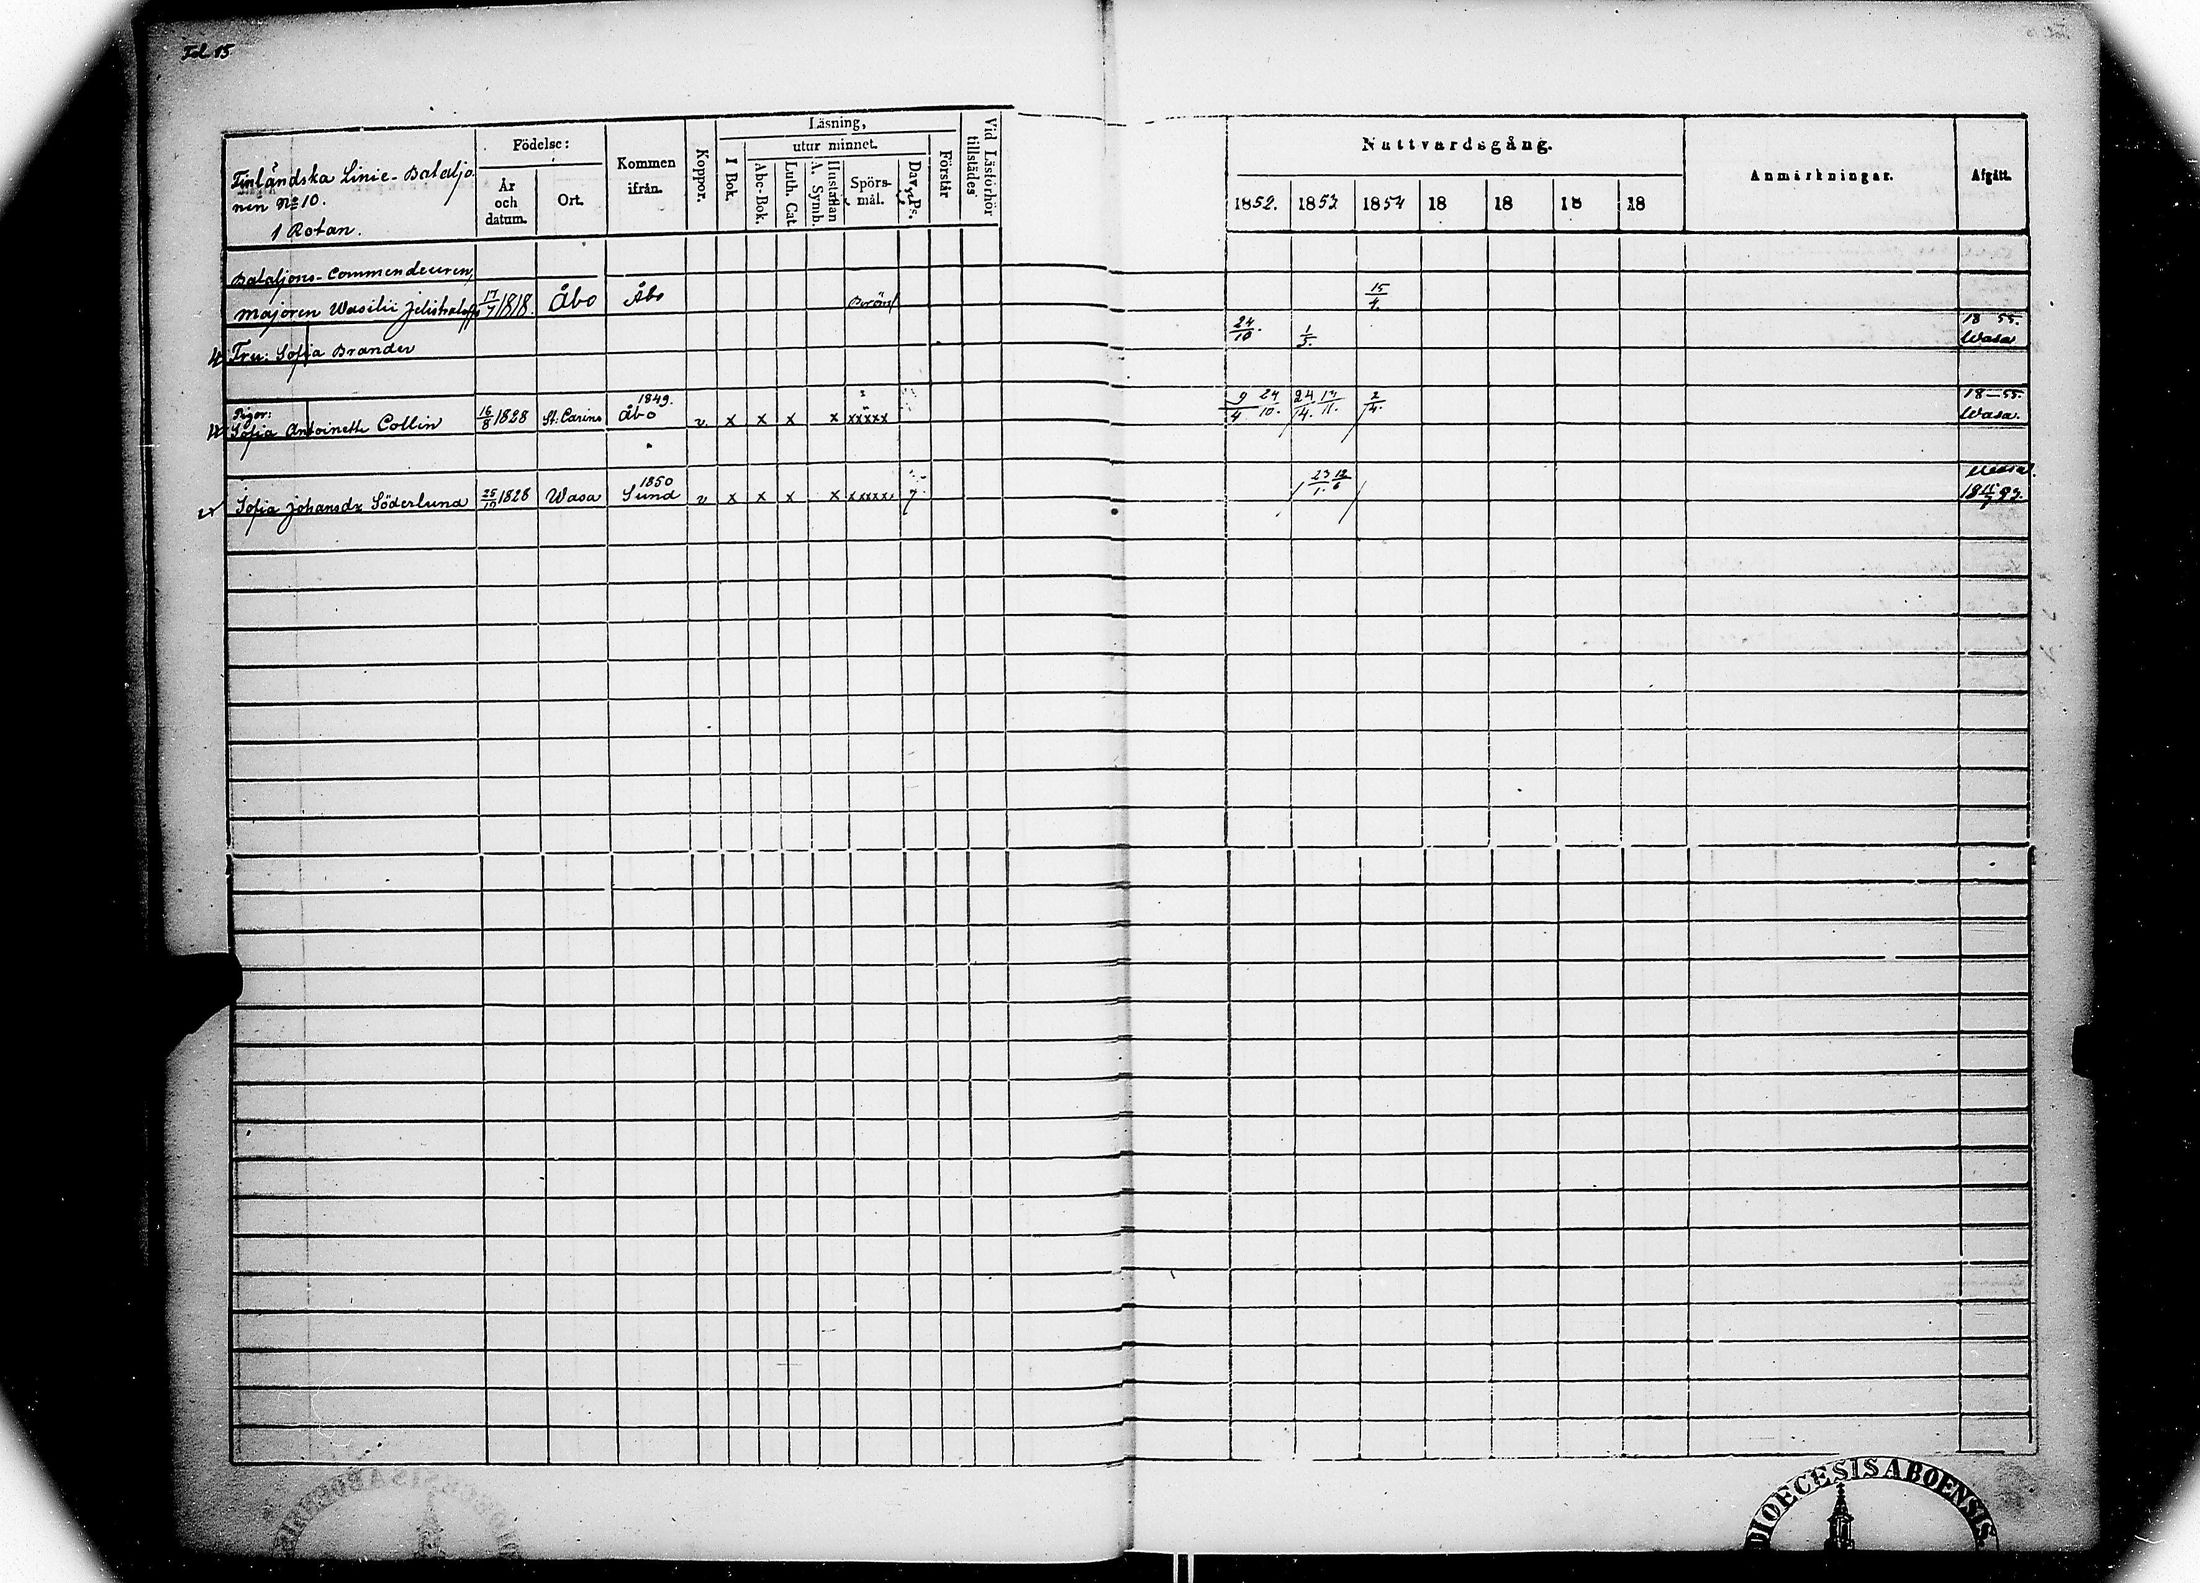 Fol. 15
Finländska Linie-Bataljo-
nen No 10.
1 Rotan.
Födelse:
År och datum.
Ort.
Kommen ifrån.
Koppor.
Läsning,
I Bok.
utur minnet.
Abc-Bok.
Luth. Cat.
A. Symb.
Hustaflan
Spörs-mål.
Dav. Ps.
Förstår
Vid Läsförhör tillstädes
Nattvardsgång.
1852. 1853 1854 18 18 18 18
Anmärkningar.
Afgått.
Bataljons-Commendeuren,
Majoren Wasilii 17/7 1818. Åbo Åbo 15/4.
Fru: Sofia Brander 24/10. 1/5. 18 55. Wasa
Pigor:
Sofia Antoinette Collin 16/8 1828 St. Carins 1849. Åbo v. x x x x xxxxx 9/4 24/10. 24/4. 17/11. 2/4. 18-55. Wasa.
Sofia Johansdr Söderlund 25/10 1828 Wasa 1850 Sund v x x x x xxxxx 23/1. 12/6
DIOECESIS ABOENSIS